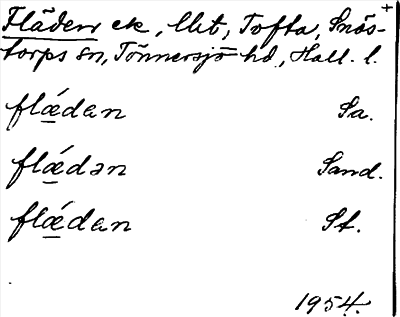 Fläden ek, llit, Tofta, Snös- +
torps sn, Tönnersjö hd, Hall. l.
flǽdan Sa.
flǽdən Sand.
flǽdan St.
1954.